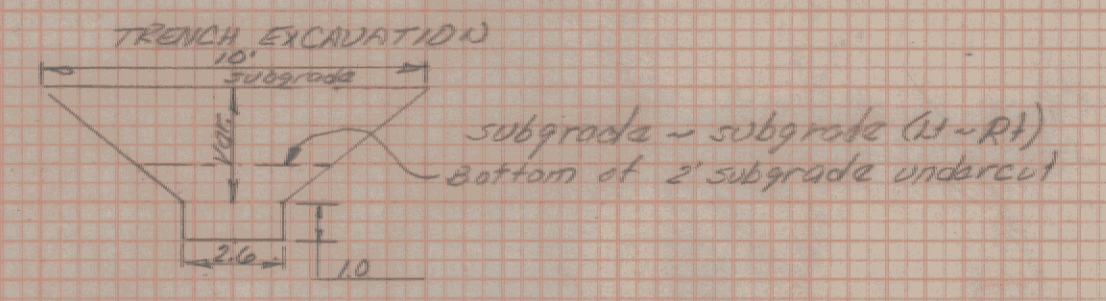 TRENCH EXCAVATION
10'
subgrade
Var.
subgrade ~ subgrade (Lt ~ Rt)
Bottom of 2' subgrade undercut
2.6
1.0